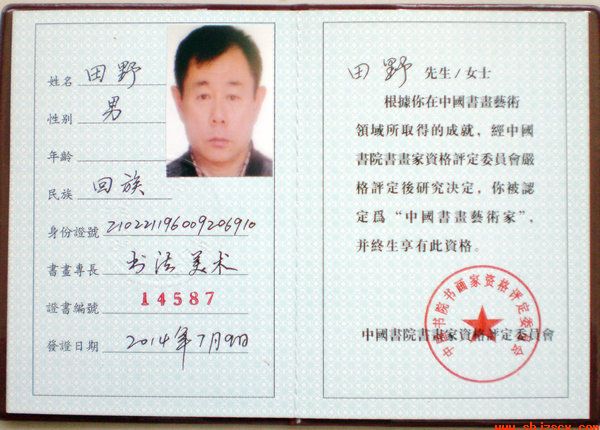 姓名 田野
性别 男
年齡
民族 回族
身份證號 210221196009206910
書畫專長 书法 美术
證書編號 14587
發證日期 2014年7月9日
田野 先生/女士
根據你在中國書畫藝術
領域所取得的成就，經中國
書院書畫家資格評定委員會嚴
格評定後研究决定，你被認
定爲“中國書畫藝術家”，
并終生享有此資格。
中國書院書畫家資格評定委員會
中国书院书画家资格评定委员会